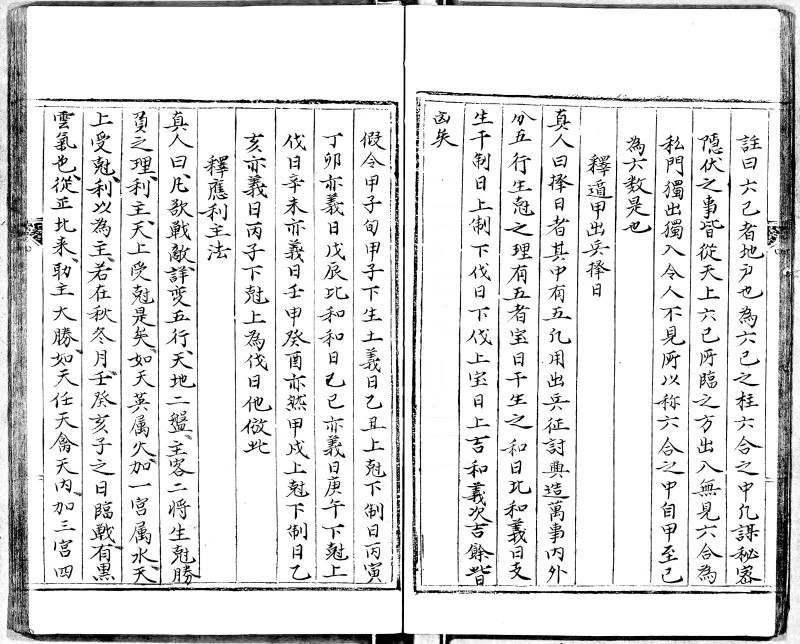 註曰六己者地户也為六己之柱六合之中凡謀秘密
隱伏之事皆從天上六己所臨之方出入無見六合為
私門獨出獨入令人不見所以称六合之中自甲至己
為六数是也
釋遁甲出兵擇日
真人曰擇日者其中有五凡用出兵征討興造萬事内外
分五行生尅之理有五者宝日干生之和日比和義日支
生干制日上制下伐日下伐上宝日上吉和義次吉餘皆
凶矣
假令甲子旬甲子下生上義日乙丑上尅下制日丙寅
丁卯亦義日戊辰比和和日己巳亦義日庚午下尅上
伐日辛未亦義日壬申癸酉亦然甲戌上尅下制日乙
亥亦義日丙子下尅上為伐日他倣此
釋應利主法
真人曰凡欲戰敵詳變五行天地二盤主客二將生尅勝
負之理利主天上受尅是矣如天英属火加一宮属水天
上受尅利以為主若在秋冬月壬癸亥子之日臨戰有黒
雲氣也從正北来助主大勝如天任天禽天内加三宮四